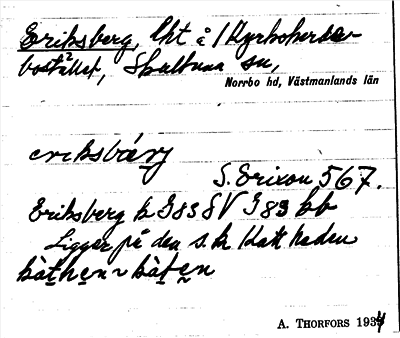 Eriksberg, lht å 1 Kyrkoherde-
bostället, Skultuna sn,
Norrbo hd, Västmanlands län
eriksbárj
S. Erixon 567.
Eriksberg k J83 S V J83 bb
Ligger på den s. k. Katt heden
kàt̲hen ~ kàt̲en
A. THORFORS 1934